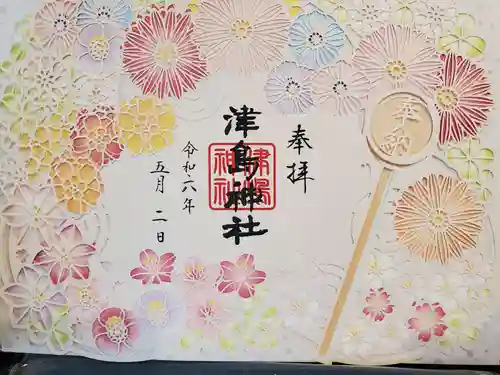 奉納
奉拝
津島神社
津島神社
令和六年
五月二日